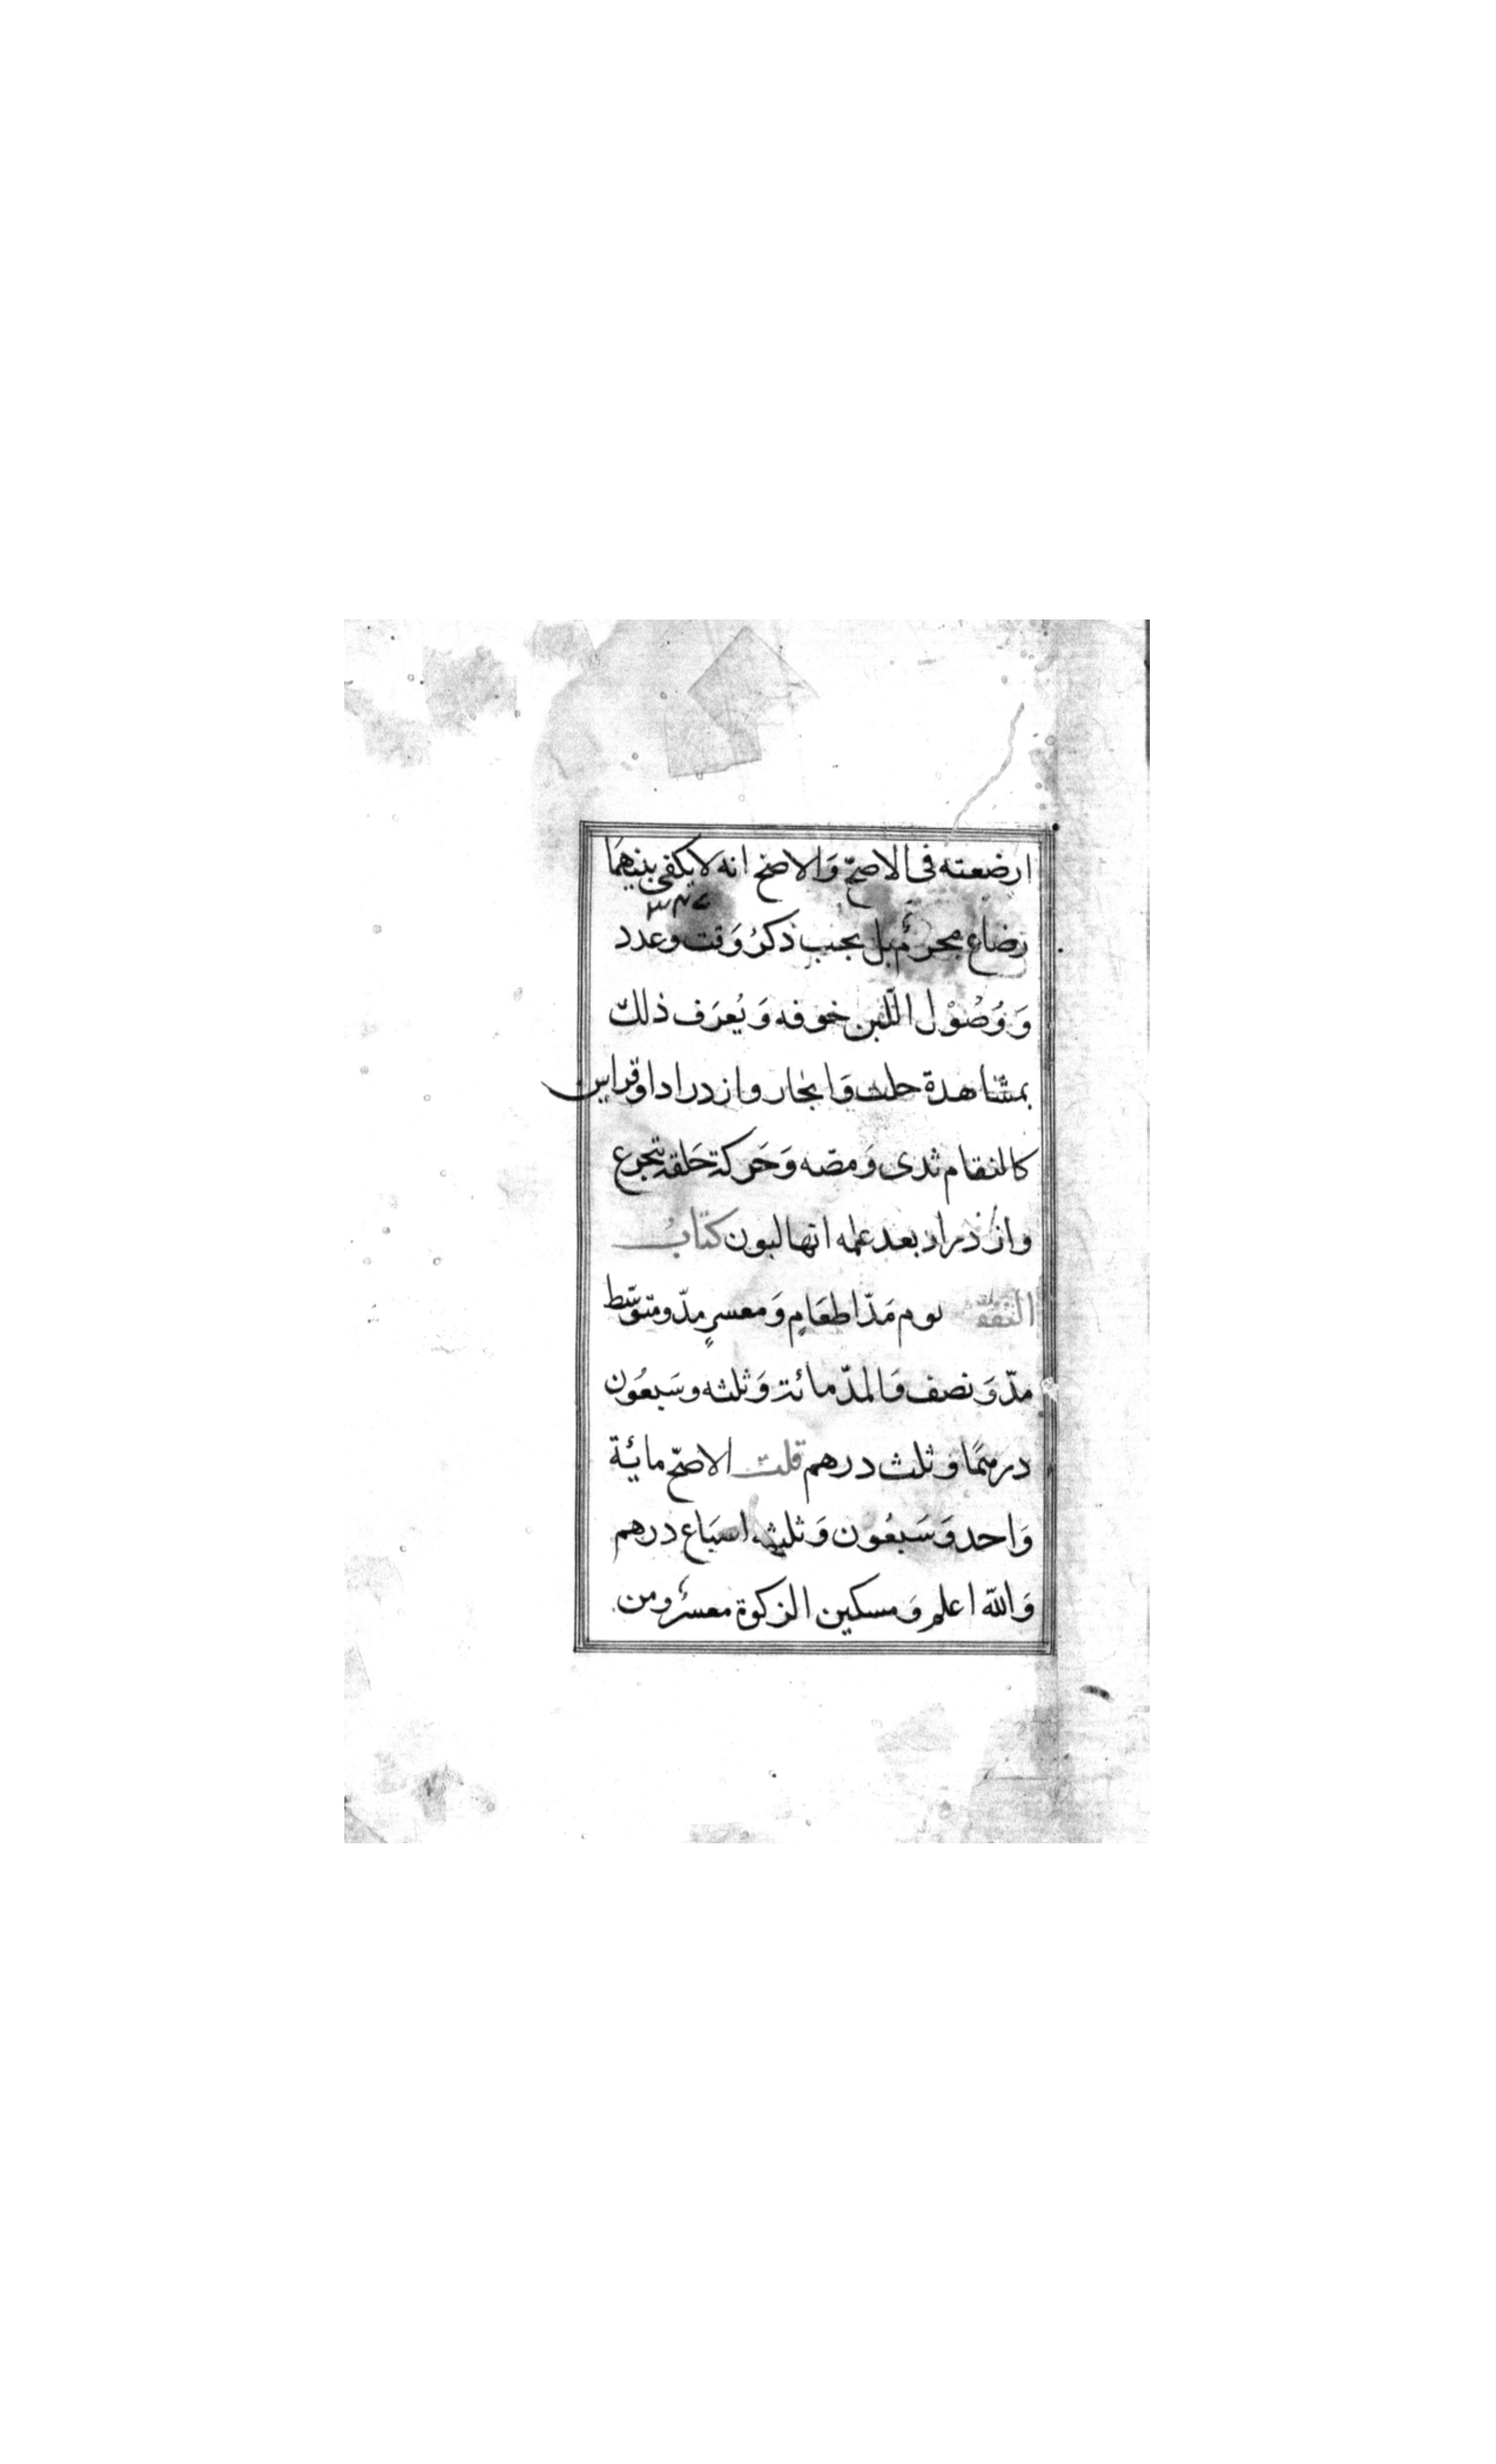 ارضعته فى الاصحّ وَالاصحّ انه لَا يكفى بينهمَا
رضاع محرمٌ بل يجب ذكرُ وَقت وعدد
وَوُصُوْل اللّبن خوفه وَيُعرَف ذلك
بمشاهدة حلب وَايجار وازدراد اوقراين
كالتقام ثدى وَمصّه وَحَركة حَلقه بتجرع
وازدراد بعد علمه انها لبون كتابُ
النفقات يوم مَدّا طعَامٍ وَمعسرٍ مدّ ومتوسّط
مدّ وَنصف وَالمدّ مائة وَثلثه وسَبعُون
درهمًا وثلث درهم قلت الاصحّ مائة
وَاحد وَسَبعُون وَثلثه اسبَاع درهم
وَالله اعلم وَمسكين الزكوة معسرٌ ومن